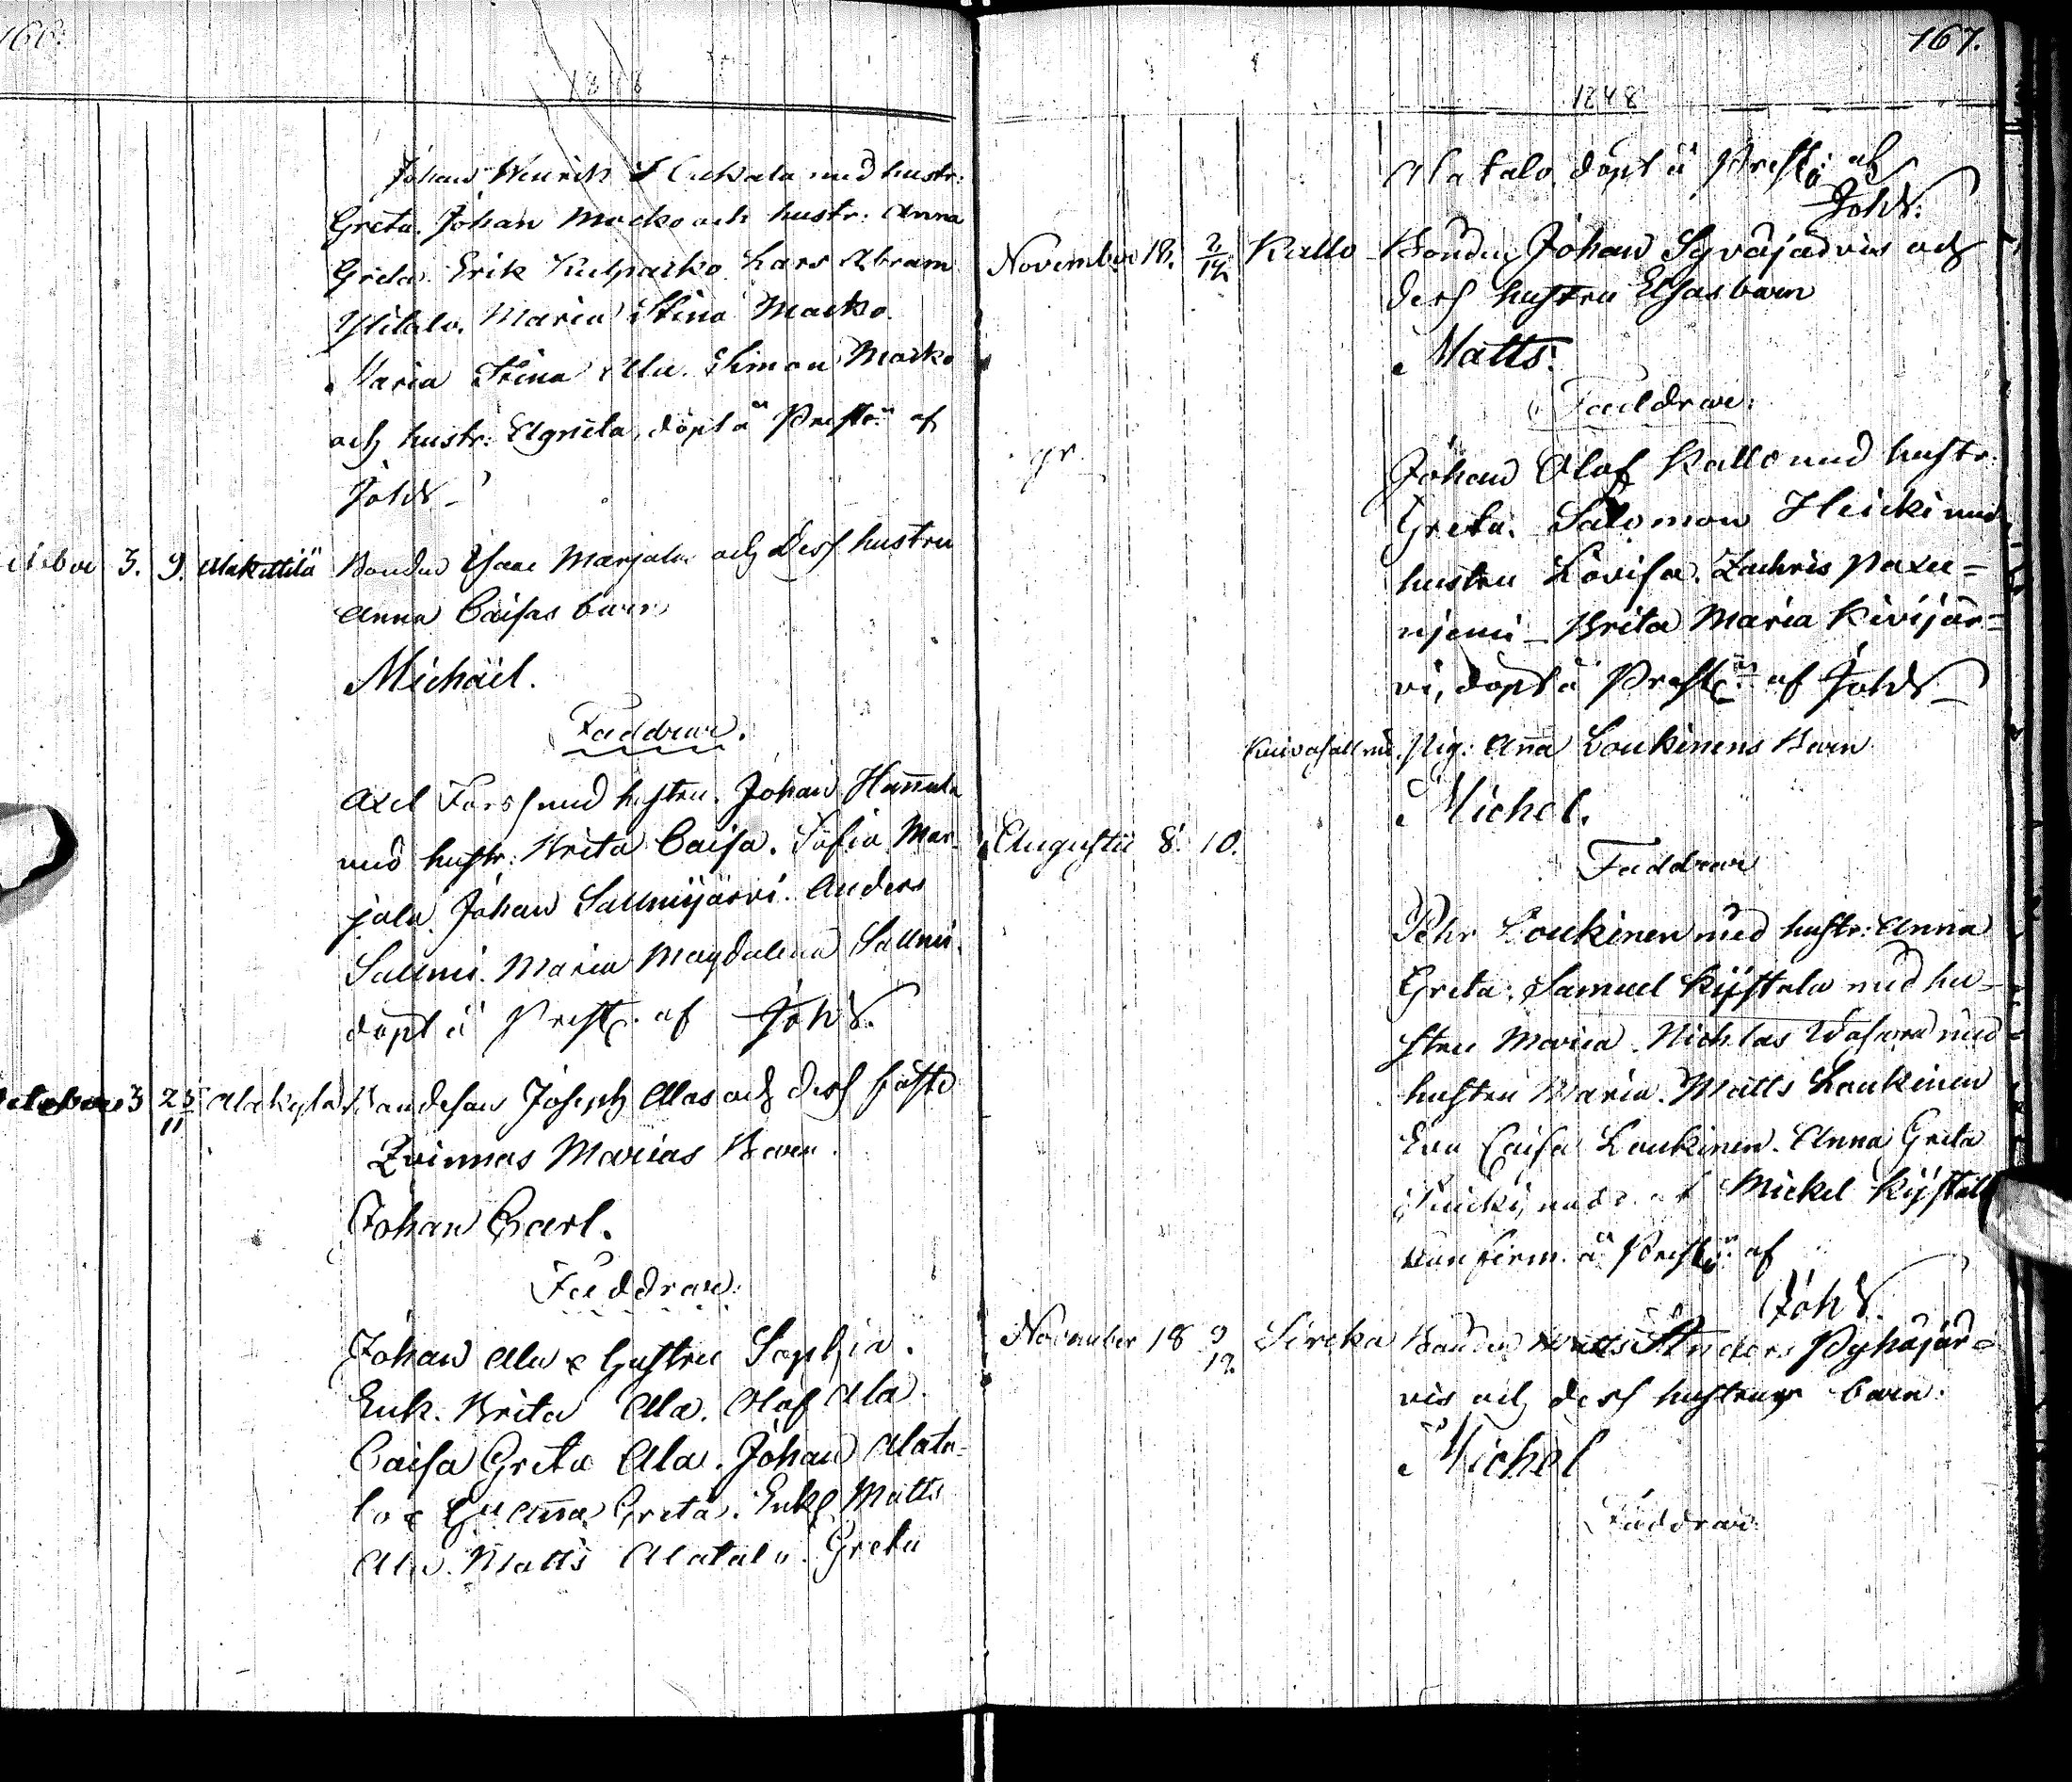 166.
1848
Johan Henrik med hustr:
Greta. Johan Mocko och hustr: Anna
Greta. Erik Lars Abram
Ylitalo. Maria Stina Macko.
Maria Stina Ala. Simon Macko
och hustr: Agneta, döpt å Prestg: af
JohS
October 3. 9. Alakittilä Bonden Isaac Marjala och dess hustru
Anna Caisas barn
Michaël.
Faddrar.
Axel Forss med hustru. Johan Hannula
med hustr: Brita Caisa. Sofia Mar-
jala. Johan Salmijärvi. Anders
Salmi. Maria Magdalena Salmi.
döpt å Prestg. af JohS.
October 3 25/11 Alakylä Bondeson Joseph Alas och dess fäste
Qvinnas Marias Barn.
Johan Carl.
Faddrar.
Johan Ala & hustru Sophia.
Enk. Brita Ala. Olof Ala.
Caisa Greta Ala. Johan Alata-
lo & Hu Anna Greta. Enkl Matts
Ala. Matts Alatalo. Greta
167.
1848
Alatalo döpt å Prestg: af
JohS.
November 18. 2/12 Kallo Bonden Johan Syväjärvis och
dess hustru Elsas barn
Matts.
Faddrar.
gr.
Johan Olof Kallo med hustr.
Greta. Salomon Heicki med
hustru Lovisa. Zachris Paxu=
njemi - Brita Maria Kivijär=
vi, döpt å Prestg: af JohS
Pig: Anna Loukinens Barn
Michel.
Augustii 8. 10.
Faddrar
Pehr Loukinen med hustr: Anna
Greta. Samuel Kijstala med hu-
stru Maria. Nichlas med
hustru Maria. Matts Loukinen
Eva Caisa Loukinen. Anna Greta
Mickel Kijstala
confirm. å Prestg: af
JohS.
November 18 9/12 Sircka Bonden Anders Pyhäjär=
vis och dess hustrus barn.
Michel
Faddrar